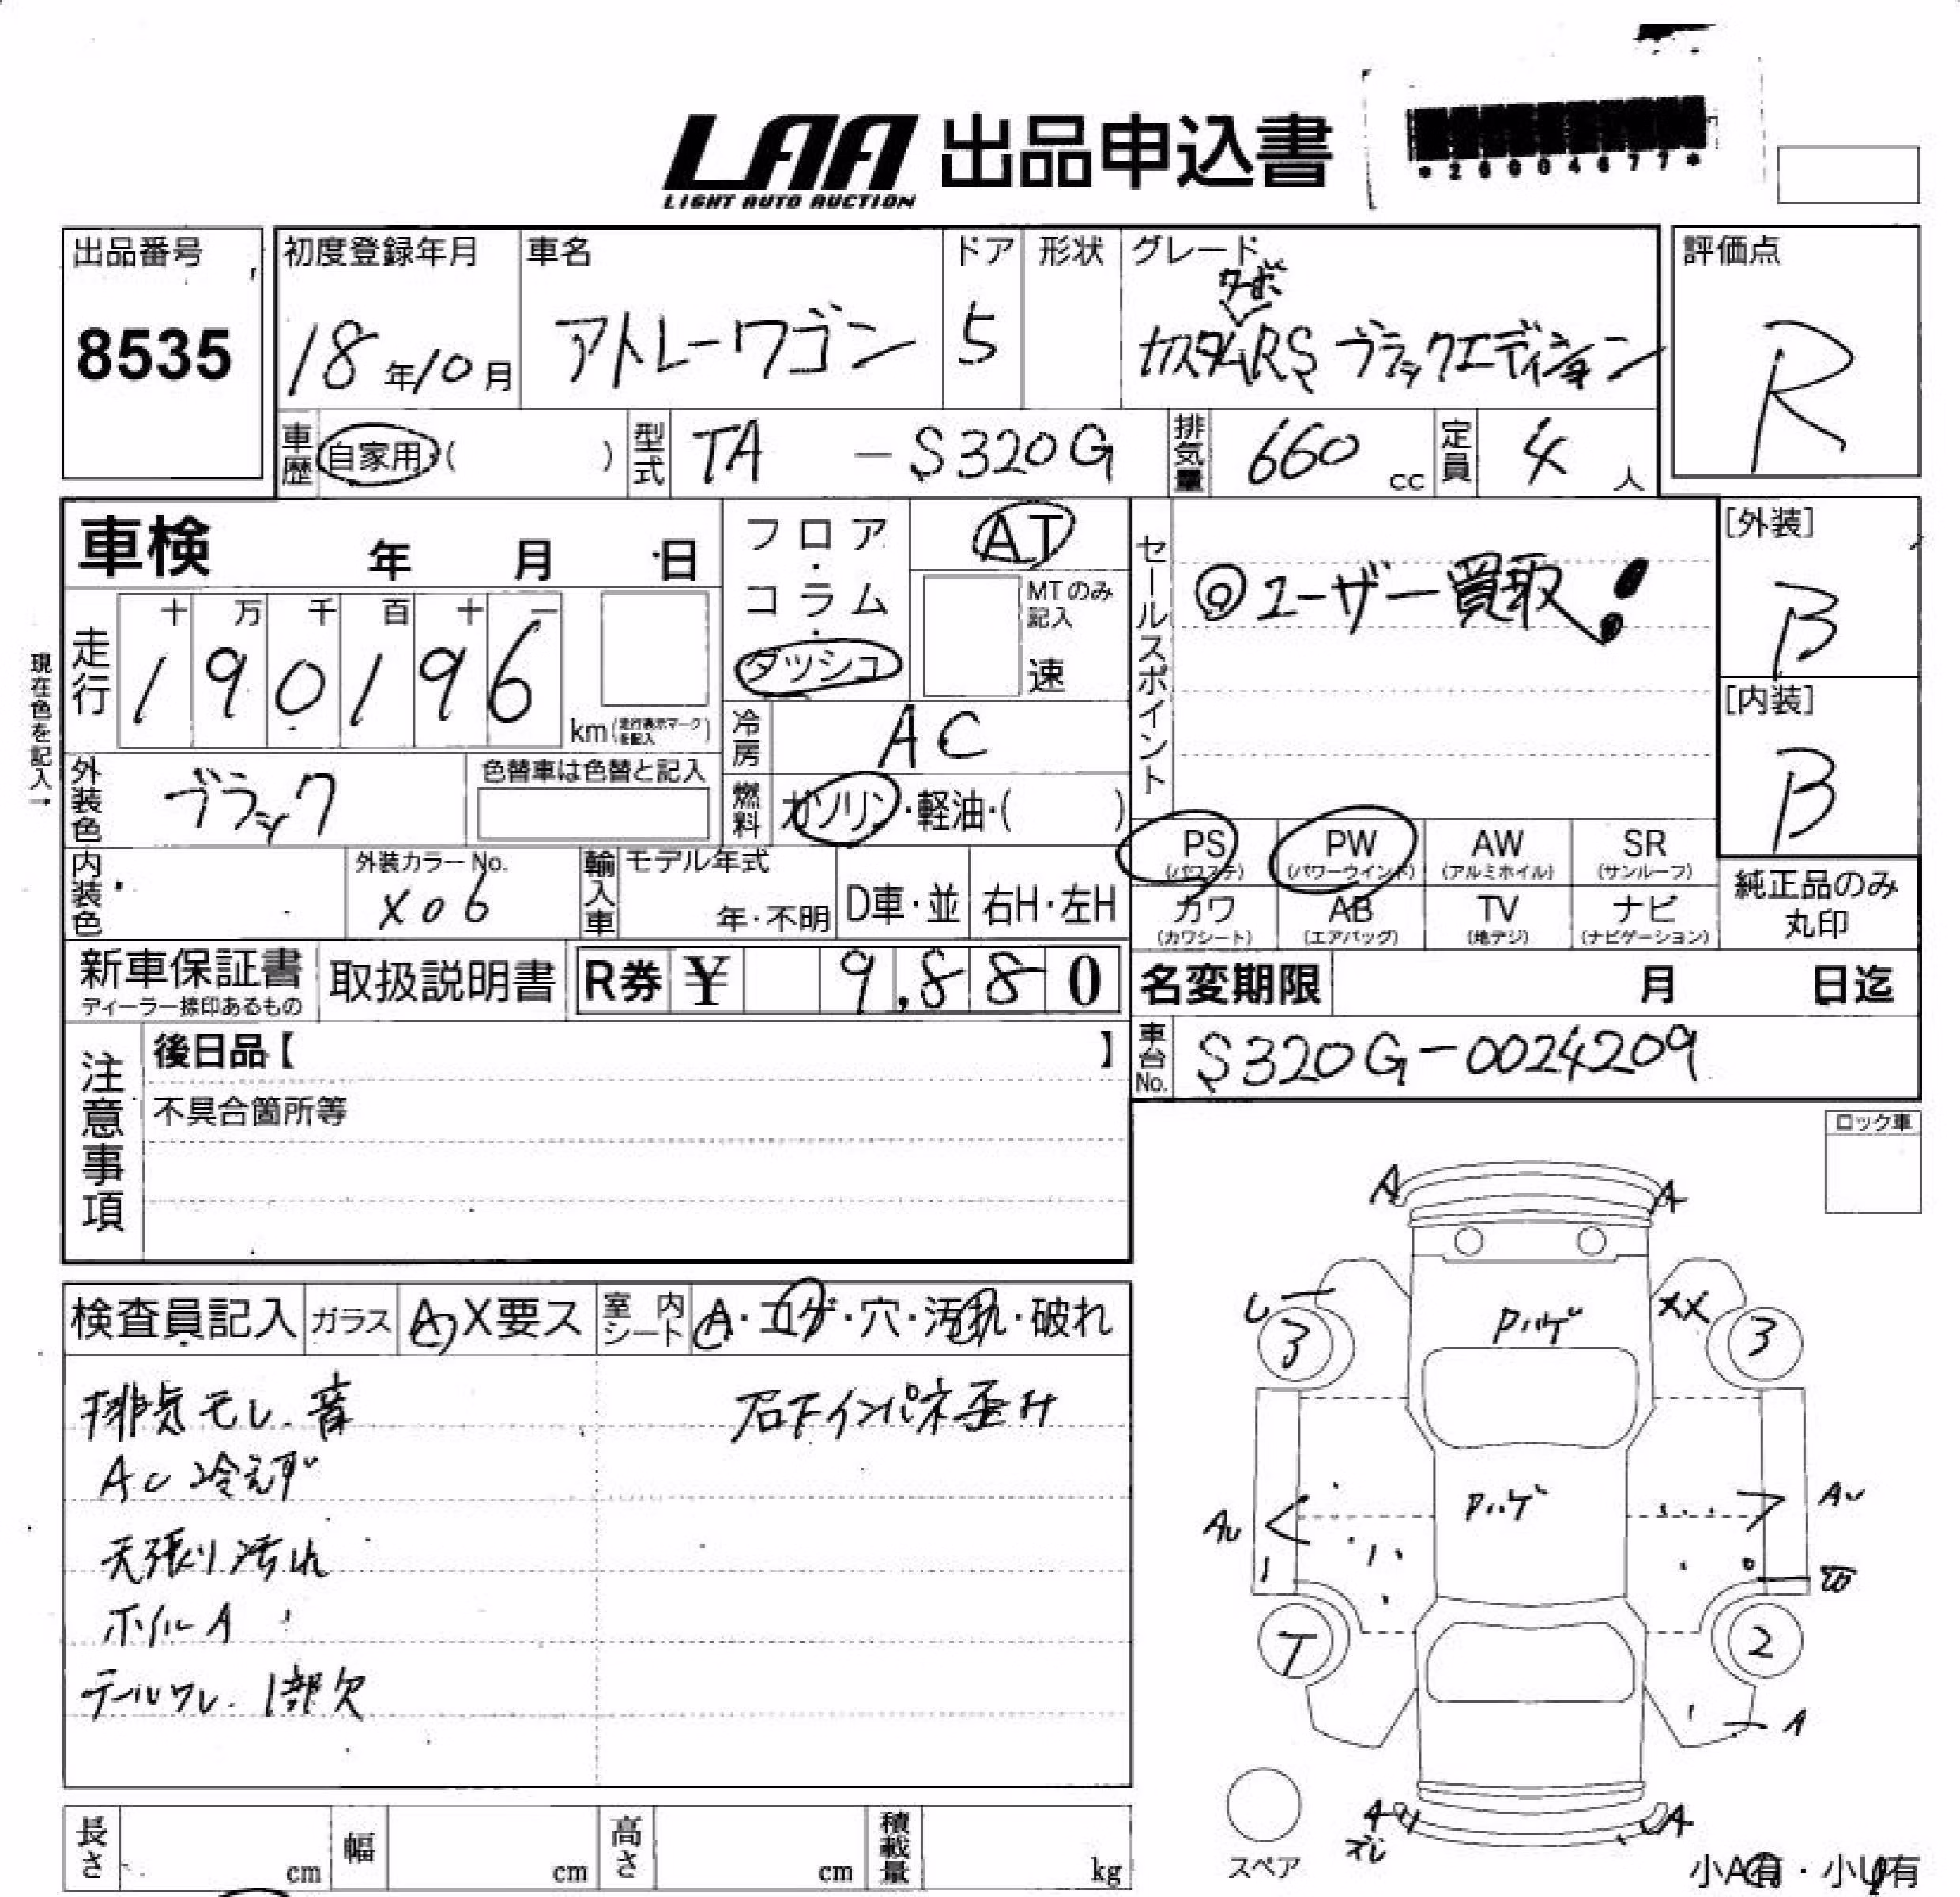 LAA 出品申込書
LIGHT AUTO AUCTION
*26004677*
出品番号
8535
初度登録年月
18年10月
車名
アトレーワゴン
ドア
5
形状
グレード
ターボ
カスタムRS ブラックエディション
評価点
R
車歴 自家用・( )
型式 TA -S320G
排気量 660 cc
定員 4 人
車検 年 月 日
現在色を記入→
走行
十 万 千 百 十 一
1 9 0 1 9 6
km (走行表示マークを記入)
フロア・コラム・ダッシュ
AT
MTのみ記入
速
冷房 AC
燃料 ガソリン・軽油・( )
セールスポイント
◎ユーザー買取!
[外装]
B
[内装]
B
外装色 ブラック
色替車は色替と記入
内装色
外装カラーNo.
X06
輸入車
モデル年式
年・不明
D車・並
右H・左H
PS (パワステ)
PW (パワーウインド)
AW (アルミホイル)
SR (サンルーフ)
カワ (カワシート)
AB (エアバッグ)
TV (地デジ)
ナビ (ナビゲーション)
純正品のみ
丸印
新車保証書
ディーラー捺印あるもの
取扱説明書
R券 ¥ 9,880
名変期限 月 日迄
車台No. S320G-0024209
注意事項
後日品【 】
不具合箇所等
ロック車
検査員記入
ガラス A X要ス
室内シート A・コゲ・穴・汚れ・破れ
排気モレ.音
右下インパネ歪み
AC冷えず
天張り汚れ
ホイルA
テールワレ.1部欠
A
A
Pハゲ
XX
3
3
Pハゲ
AU
AU
T
2
A
A
A
スペア
小A有・小U有
長さ cm
幅 cm
高さ cm
積載量 kg